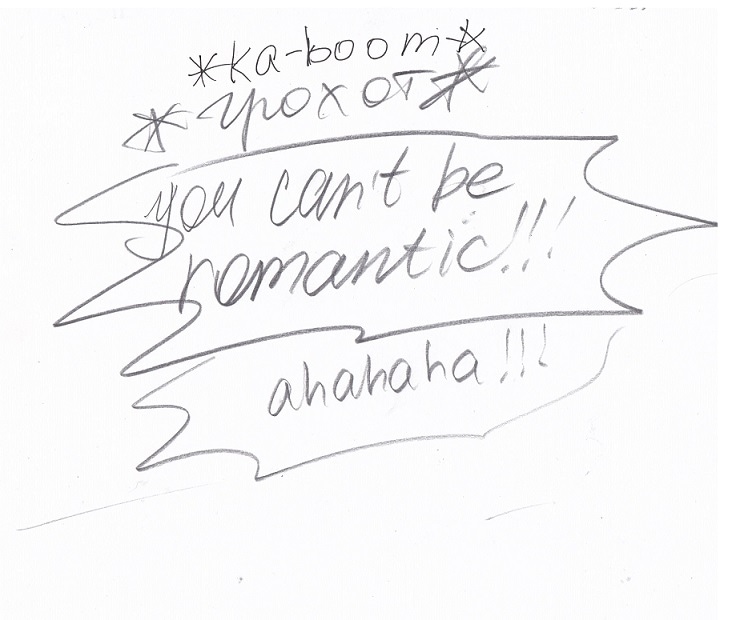 *ka-boom*
*грохот*
you can't be
romantic!!!
ahahaha!!!